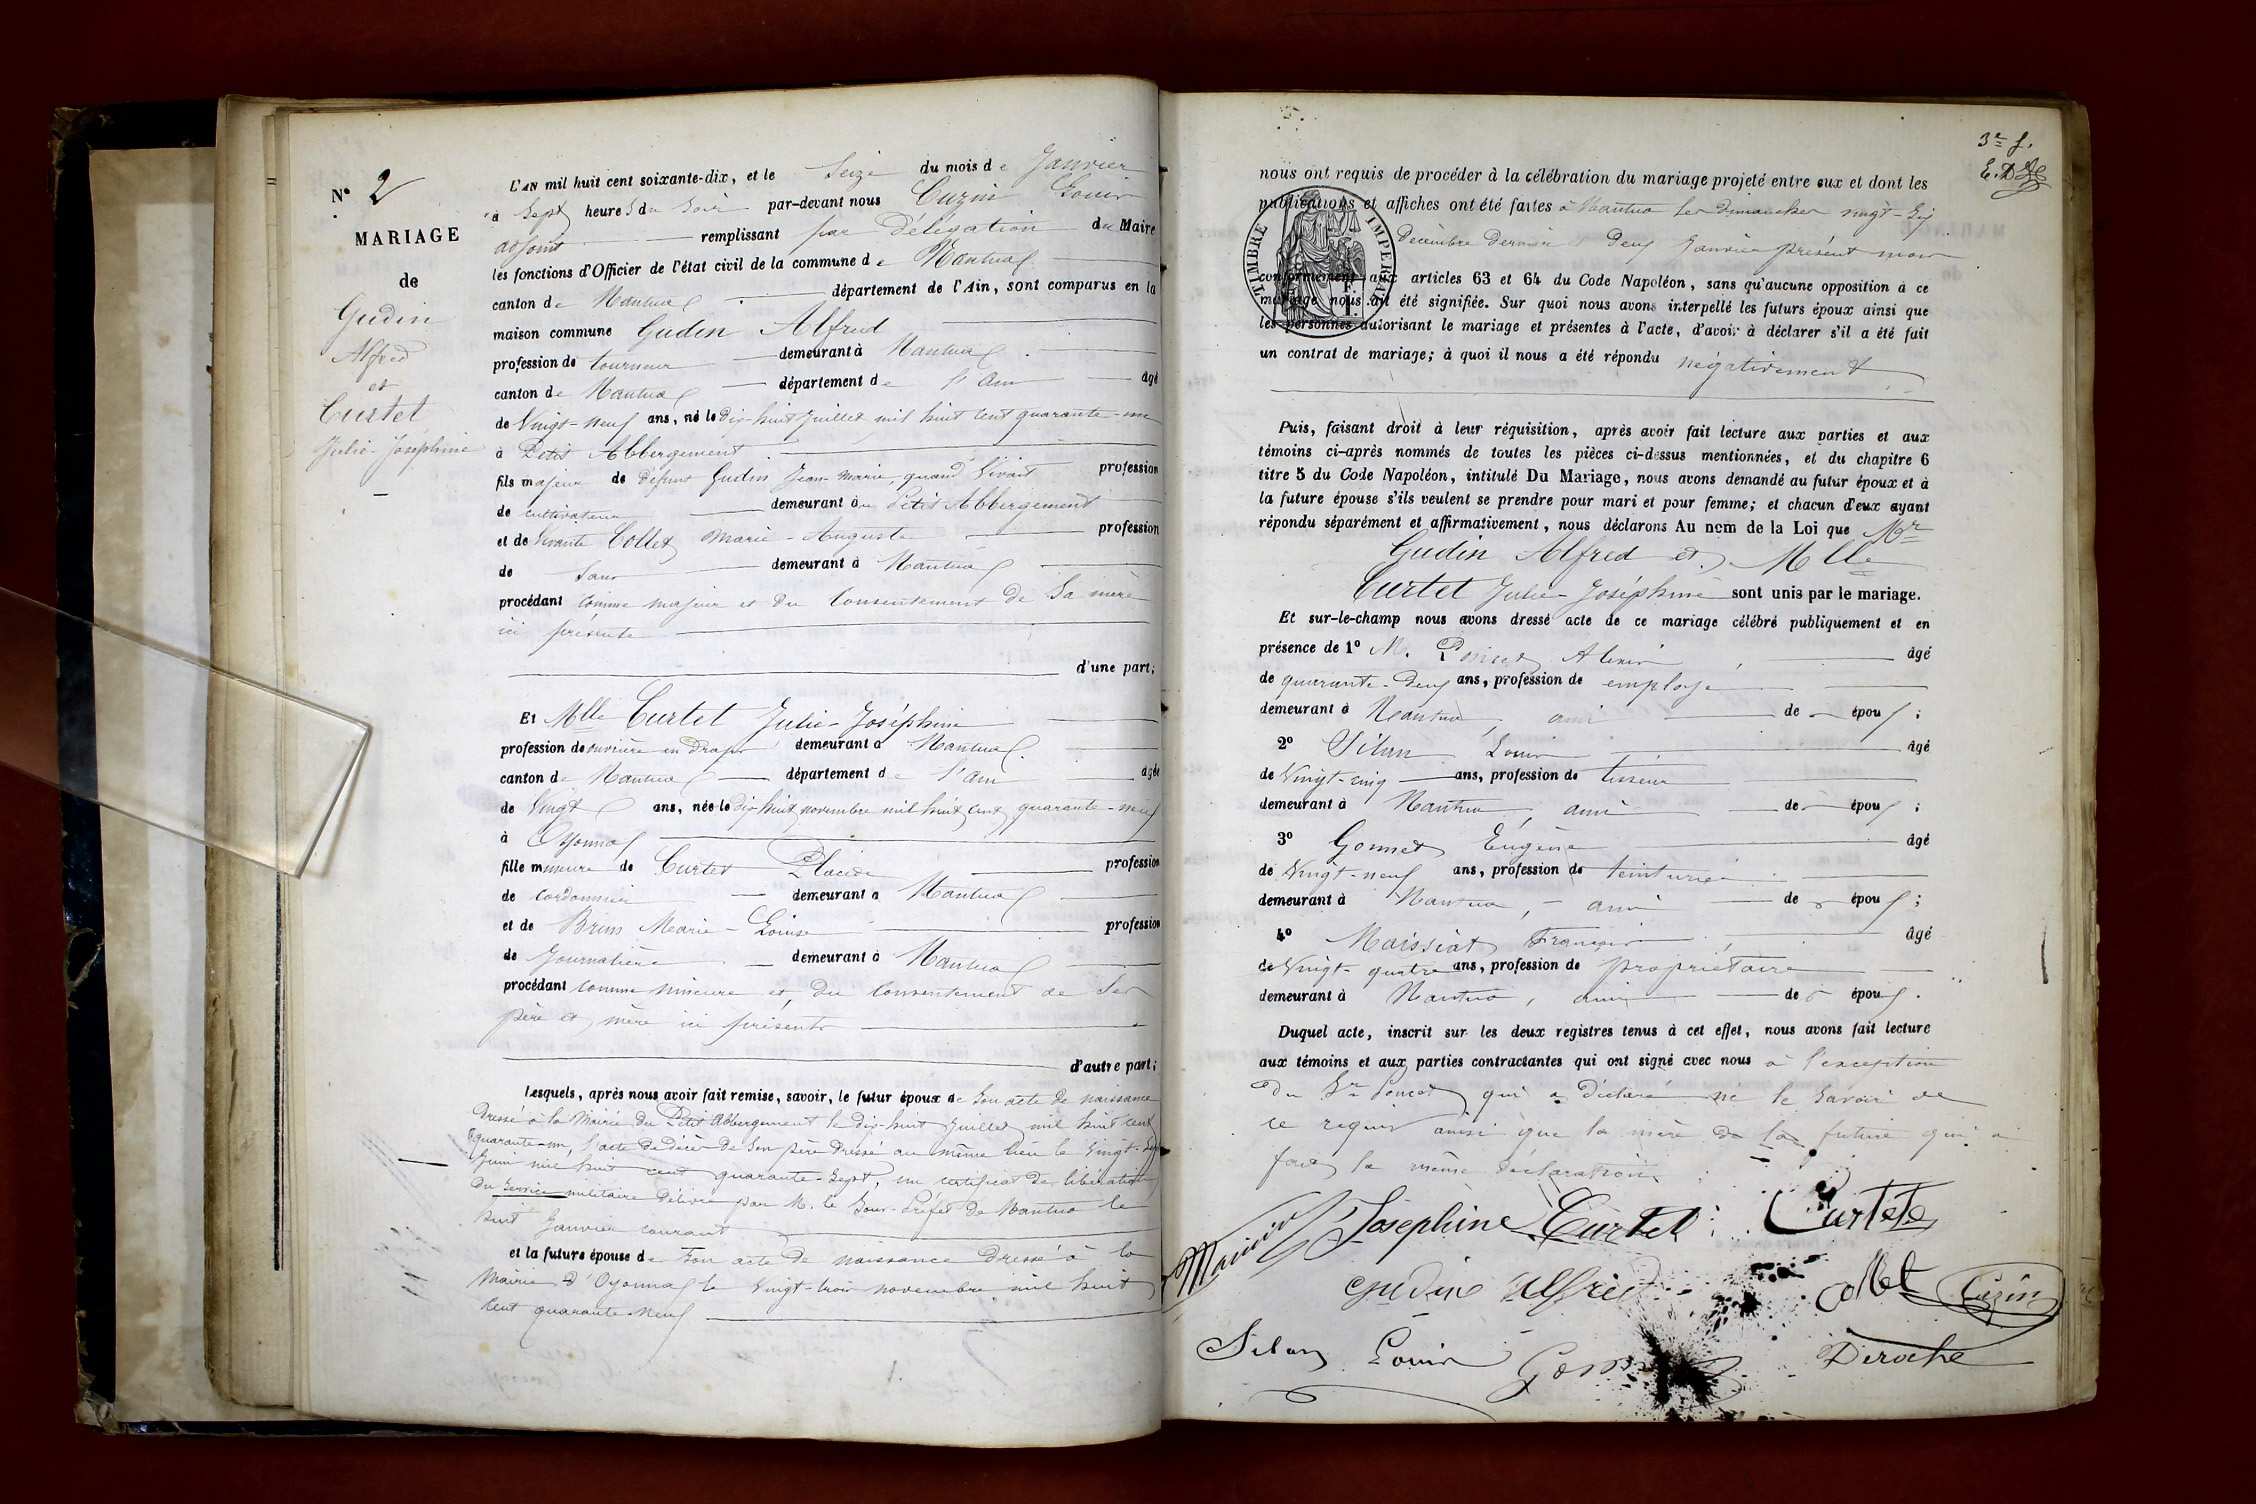 N° 2
MARIAGE
de
Gudin
Alfred
et
Curtet
Julie-Joséphine
L'AN mil huit cent soixante-dix, et le Seize du mois de Janvier
à Sept heures du Soir par-devant nous Cuzin Louis
adjoint remplissant par Délégation du Maire
les fonctions d'Officier de l'état civil de la commune de Nantua
canton de Nantua département de l'Ain, sont comparus en la
maison commune Gudin Alfred
profession de tourneur demeurant à Nantua
canton de Nantua département de l'Ain âgé
de Vingt-neuf ans, né le Dix-huit Juillet mil huit cent quarante-un
à Petit Abbergement
fils majeur de défunt Gudin Jean-Marie, quand Vivait profession
de cultivateur demeurant au Petit Abbergement
et de Vivante Collet Marie-Auguste profession
de Sans demeurant à Nantua
procédant comme majeur et du Consentement de Sa mère
ici présente
d'une part;
Et Mlle Curtet Julie-Joséphine
profession de ouvrière en Draps demeurant à Nantua
canton de Nantua département de l'Ain âgée
de Vingt ans, née le dix-huit novembre mil huit cent quarante-neuf
à Oyonnax
fille mineure de Curtet Placide profession
de Cordonnier demeurant à Nantua
et de Brun Marie-Louise profession
de Journalière demeurant à Nantua
procédant comme mineure et du Consentement de Ses
père et mère ici présents
d'autre part;
Lesquels, après nous avoir fait remise, savoir, le futur époux de Son acte de naissance
Dressé à la Mairie du Petit Abbergement le dix-huit Juillet mil huit cent
quarante-un, l'acte de Décès de Son père Dressé au même lieu le Vingt-
Juin mil huit cent quarante-Sept, un certificat de libération
du Service militaire Délivré par M. le Sous-Préfet de Nantua le
huit Janvier courant
et la future épouse de Son acte de naissance dressé à la
Mairie d'Oyonnax le Vingt-trois novembre mil huit
Cent quarante-neuf
3e f.
nous ont requis de procéder à la célébration du mariage projeté entre eux et dont les
publications et affiches ont été faites à Nantua les Dimanches vingt-Six
Décembre Dernier Deux Janvier présent mois
TIMBRE IMPERIAL
conformément aux articles 63 et 64 du Code Napoléon, sans qu'aucune opposition à ce
mariage nous ait été signifiée. Sur quoi nous avons interpellé les futurs époux ainsi que
les personnes autorisant le mariage et présentes à l'acte, d'avoir à déclarer s'il a été fait
un contrat de mariage; à quoi il nous a été répondu négativement
Puis, faisant droit à leur réquisition, après avoir fait lecture aux parties et aux
témoins ci-après nommés de toutes les pièces ci-dessus mentionnées, et du chapitre 6
titre 5 du Code Napoléon, intitulé Du Mariage, nous avons demandé au futur époux et à
la future épouse s'ils veulent se prendre pour mari et pour femme; et chacun d'eux ayant
répondu séparément et affirmativement, nous déclarons Au nom de la Loi que Mr
Gudin Alfred et Mlle
Curtet Julie-Joséphine sont unis par le mariage.
Et sur-le-champ nous avons dressé acte de ce mariage célébré publiquement et en
présence de 1° M. Poncet Alexis âgé
de quarante-Deux ans, profession de employé
demeurant à Nantua, ami de époux;
2° Silan Louis âgé
de Vingt-cinq ans, profession de tisseur
demeurant à Nantua, ami de époux;
3° Gonnet Eugène âgé
de Vingt-neuf ans, profession de teinturier
demeurant à Nantua, ami de époux;
4° Maissiat François âgé
de Vingt-quatre ans, profession de propriétaire
demeurant à Nantua, ami de époux.
Duquel acte, inscrit sur les deux registres tenus à cet effet, nous avons fait lecture
aux témoins et aux parties contractantes qui ont signé avec nous à l'exception
du Sr Poncet qui a Déclaré ne le Savoir de
ce requis ainsi que la mère de la future qui a
fait la même déclaration
Joséphine Curtet Curtet
Gudin Alfred Collet Cuzin
Silan Louis Deroche